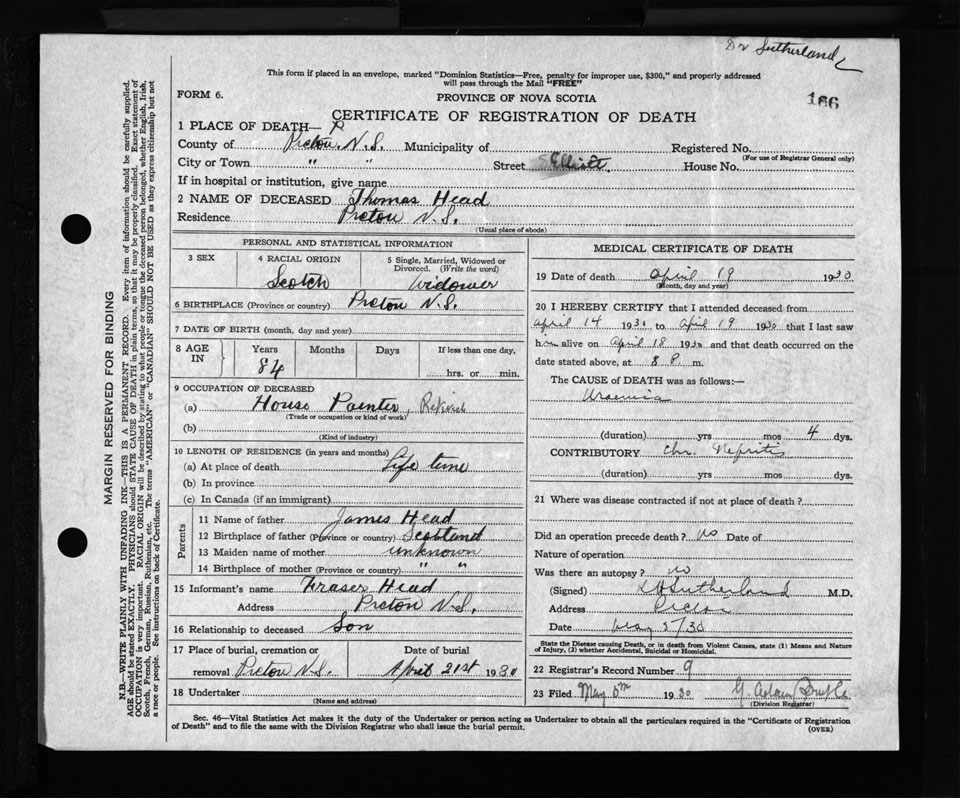 Dr Sutherland
This form if placed in an envelope, marked "Dominion Statistics—Free, penalty for improper use, $300," and properly addressed
will pass through the Mail "FREE"
166
FORM 6.
PROVINCE OF NOVA SCOTIA
CERTIFICATE OF REGISTRATION OF DEATH
1 PLACE OF DEATH—
County of Pictou. N.S. Municipality of Registered No.
(For use of Registrar General only)
City or Town " " Street S Elliott. House No.
If in hospital or institution, give name
2 NAME OF DECEASED Thomas Head
Residence Pictou N.S.
(Usual place of abode)
PERSONAL AND STATISTICAL INFORMATION
3 SEX 4 RACIAL ORIGIN 5 Single, Married, Widowed or Divorced. (Write the word)
Scotch Widower
6 BIRTHPLACE (Province or country) Pictou N.S.
7 DATE OF BIRTH (month, day and year)
8 AGE IN Years Months Days If less than one day,
84 hrs. or min.
9 OCCUPATION OF DECEASED
(a) House Painter, Retired
(Trade or occupation or kind of work)
(b)
(Kind of industry)
10 LENGTH OF RESIDENCE (in years and months)
(a) At place of death Life time
(b) In province
(c) In Canada (if an immigrant)
Parents
11 Name of father James Head
12 Birthplace of father (Province or country) Scotland
13 Maiden name of mother unknown
14 Birthplace of mother (Province or country) " "
15 Informant's name Fraser Head
Address Pictou N.S.
16 Relationship to deceased Son
17 Place of burial, cremation or Date of burial
removal Pictou N.S. April 21st 1930
18 Undertaker
(Name and address)
MEDICAL CERTIFICATE OF DEATH
19 Date of death April 19 1930
(Month, day and year)
20 I HEREBY CERTIFY that I attended deceased from
April 14 1930 to April 19 1930 that I last saw
h im alive on April 18 1930 and that death occurred on the
date stated above, at 8 P. m.
The CAUSE of DEATH was as follows:—
Uraemia
(duration) yrs mos 4 dys.
CONTRIBUTORY Chr. Nefritis
(duration) yrs. mos. dys.
21 Where was disease contracted if not at place of death?
Did an operation precede death? no Date of
Nature of operation
Was there an autopsy? no
(Signed) Sutherland M.D.
Address Pictou
Date May 5/30
State the Disease causing Death, or in death from Violent Causes, state (1) Means and Nature
of Injury, (2) whether Accidental, Suicidal or Homicidal.
22 Registrar's Record Number 9
23 Filed May 5th 1930 G.
(Division Registrar)
Sec. 46—Vital Statistics Act makes it the duty of the Undertaker or person acting as Undertaker to obtain all the particulars required in the "Certificate of Registration
of Death" and to file the same with the Division Registrar who shall issue the burial permit.
(OVER)
MARGIN RESERVED FOR BINDING
N.B.—WRITE PLAINLY WITH UNFADING INK—THIS IS A PERMANENT RECORD. Every item of information should be carefully supplied.
AGE should be stated EXACTLY. PHYSICIANS should STATE CAUSE OF DEATH in plain terms, so that it may be properly classified. Exact statement of
OCCUPATION is very important. RACIAL ORIGIN will be described by stating to what people or tongue the deceased person belonged, whether English, Irish,
Scotch, French, German, Russian, Ruthenian, etc. The terms "AMERICAN" or "CANADIAN" SHOULD NOT BE USED as they express citizenship but not
a race or people. See instructions on back of Certificate.